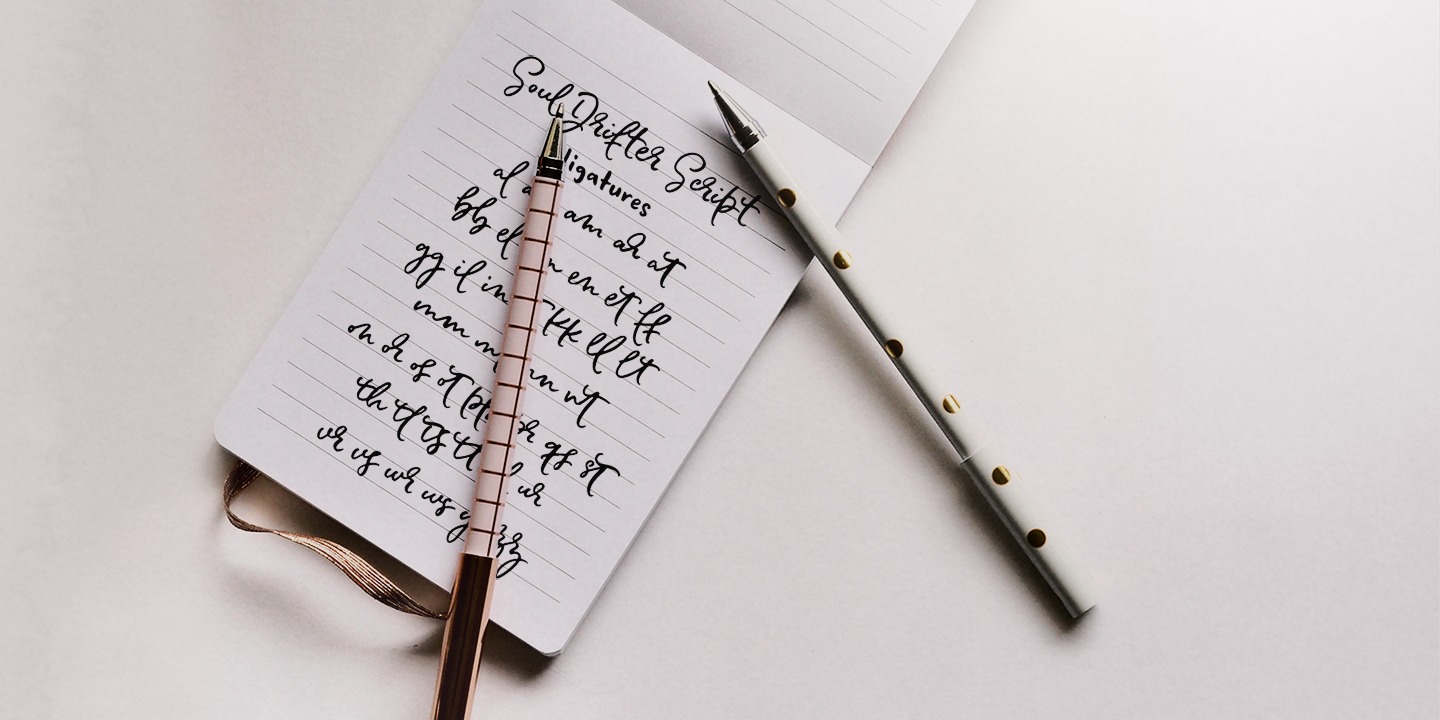 Soul Drifter Script
ligatures
al am ar at
bb el en et ff
gg il in kk ll lt
mm nt
on or os ot qs st
th tl ts ur
vr vs wr ws zz